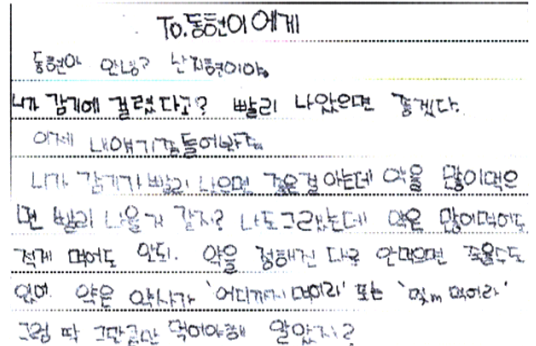 To.동현이에게
동현아 안녕? 난 지현이야.
니가 감기에 걸렸다고? 빨리 나았으면 좋겠다.
이제 내얘기좀들어봐.
니가 감기가 빨리 나으면 좋은걸 아는데 약을 많이먹으
면 빨리 나을거 같지? 나도그랬는데 약은 많이먹어도
적게 먹어도 안되. 약을 정해진 대로 안먹으면 죽을수도
있어. 약은 약사가 '어디까지 먹어라' 또는 '몇m 먹어라'
그럼 딱 그만큼만 먹어야해 알았지?